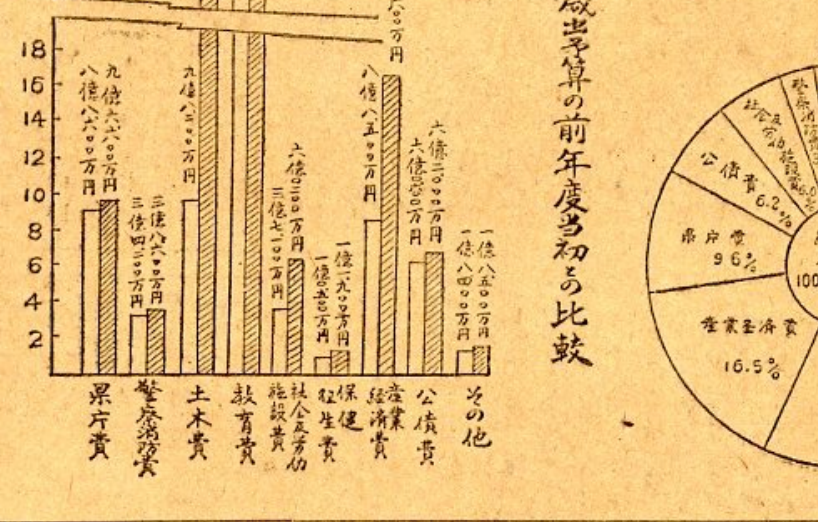 歳出予算の前年度当初との比較
18
16
14
12
10
8
6
4
2
八億八六〇〇万円
九億六六〇〇万円
三億四二〇〇万円
三億八六〇〇万円
九億八二〇〇万円
三億七一〇〇万円
六億〇三〇〇万円
一億〇五〇〇万円
一億一九〇〇万円
八億八五〇〇万円
〇〇万円
六億〇〇万円
六億二〇〇〇万円
一億八四〇〇万円
一億八五〇〇万円
県庁費
警察消防費
土木費
教育費
社会及労仂
施設費
保健
衛生費
産業
経済費
公債費
その他
警察消防費
社会及
労仂施設費
6.0%
公債費
6.2%
県庁費
9.6%
産業経済費
16.5%
100